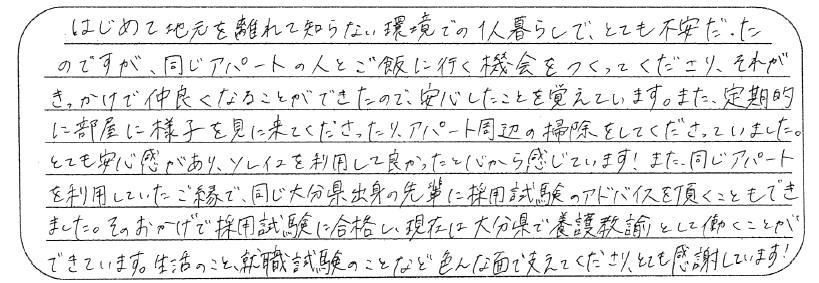 はじめて地元を離れて知らない環境での1人暮らしで、とても不安だった
のですが、同じアパートの人とご飯に行く機会をつくってくださり、それが
きっかけで仲良くなることができたので、安心したことを覚えています。また、定期的
に部屋に様子を見に来てくださったり、アパート周辺の掃除をしてくださっていました。
とても安心感があり、ソレイユを利用して良かったと心から感じています!また、同じアパート
を利用していたご縁で、同じ大分県出身の先輩に採用試験のアドバイスを頂くこともでき
ました。そのおかげで採用試験に合格し、現在は大分県で養護教諭として働くことが
できています。生活のこと、就職試験のことなど色んな面で支えてくださり、とても感謝しています!